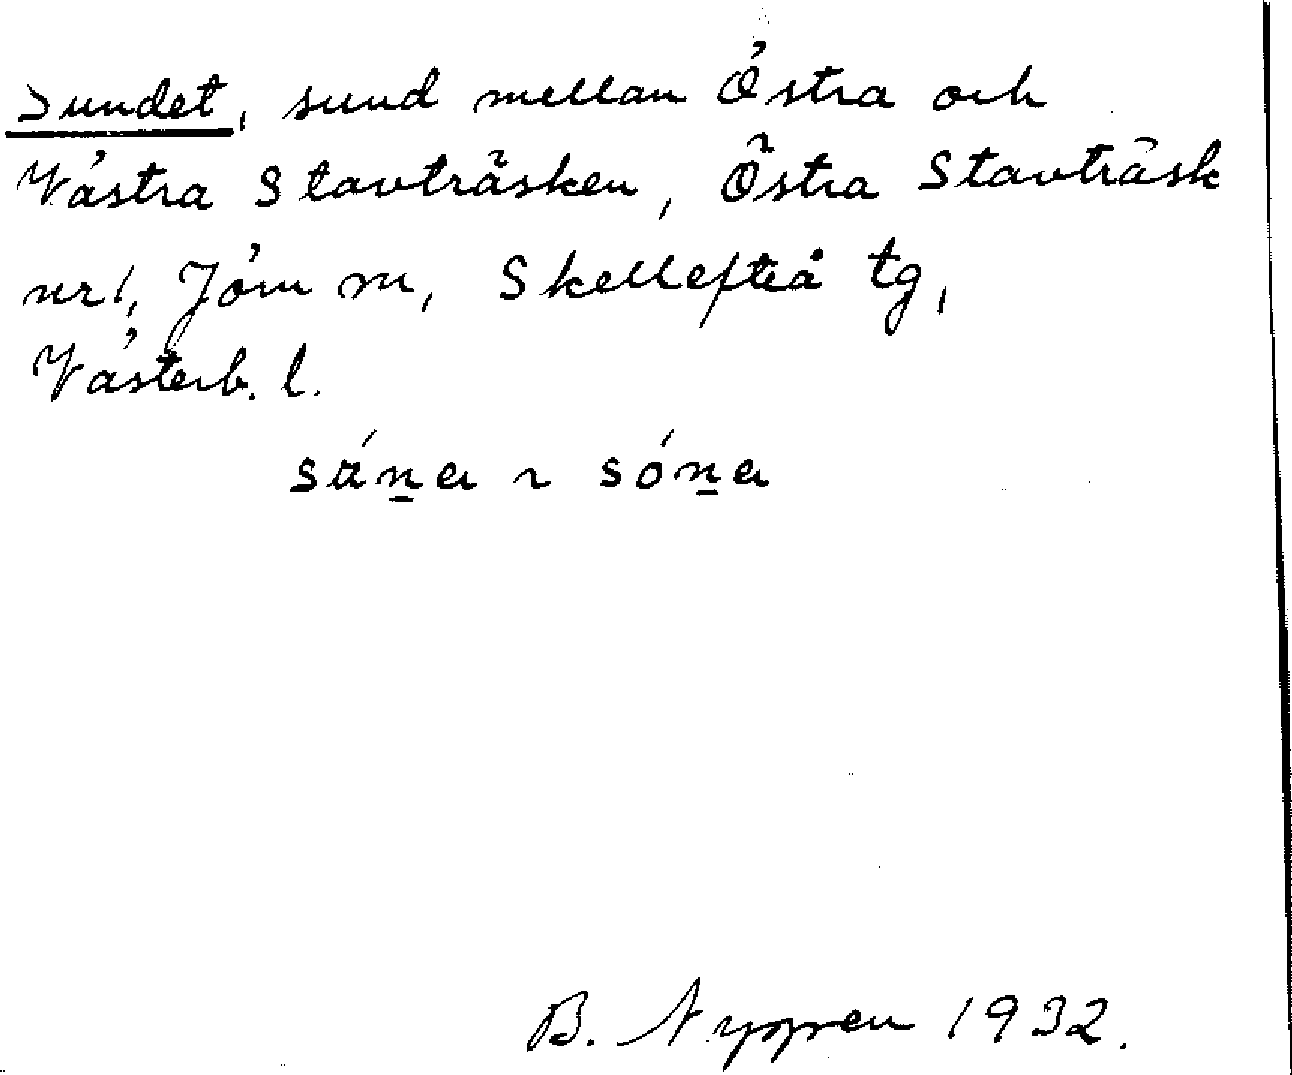 Sundet, sund mellan Östra och
Västra Stavträsken, Östra Stavträsk
nr 1, Jörn sn, Skellefteå tg,
Västerb. l.
B. Nyppen 1932.